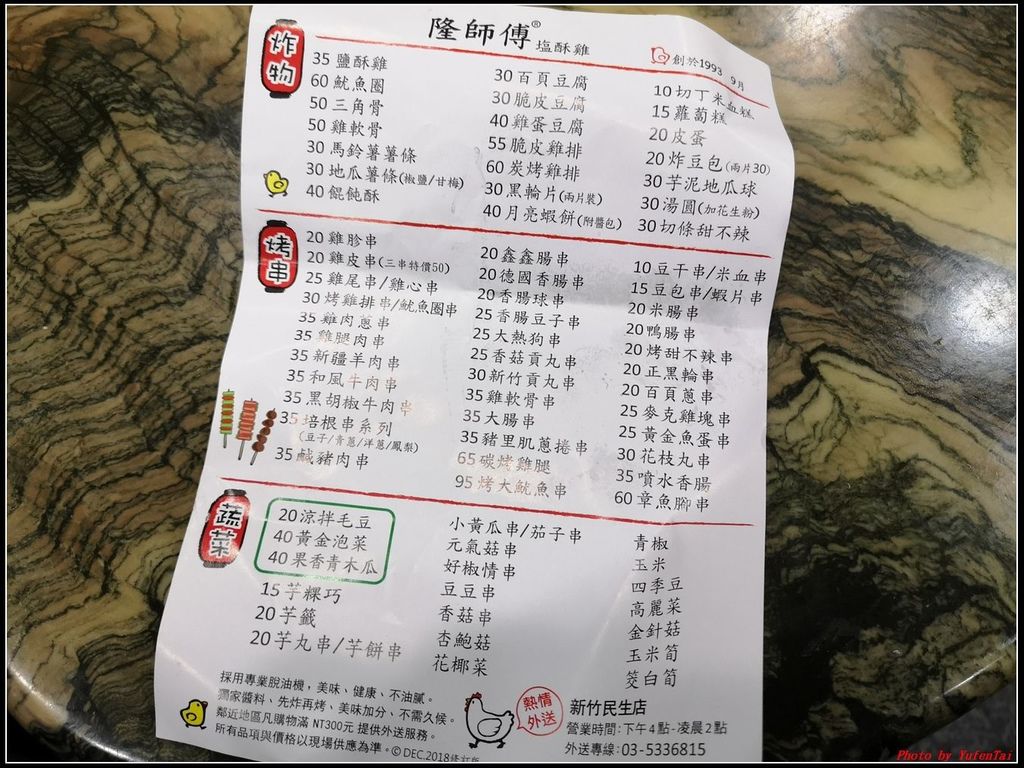 隆師傅® 塩酥雞
創於1993 9月
炸物
35 鹽酥雞
60 魷魚圈
50 三角骨
50 雞軟骨
30 馬鈴薯薯條
30 地瓜薯條(椒鹽/甘梅)
40 餛飩酥
30 百頁豆腐
30 脆皮豆腐
40 雞蛋豆腐
55 脆皮雞排
60 炭烤雞排
30 黑輪片(兩片裝)
40 月亮蝦餅(附醬包)
10 切丁米血糕
15 蘿蔔糕
20 皮蛋
20 炸豆包(兩片30)
30 芋泥地瓜球
30 湯圓(加花生粉)
30 切條甜不辣
烤串
20 雞胗串
20 雞皮串(三串特價50)
25 雞尾串/雞心串
30 烤雞排串/魷魚圈串
35 雞肉蔥串
35 雞腿肉串
35 新疆羊肉串
35 和風牛肉串
35 黑胡椒牛肉串
35 培根串系列
(豆子/青蔥/洋蔥/鳳梨)
35 鹹豬肉串
20 鑫鑫腸串
20 德國香腸串
20 香腸球串
25 香腸豆子串
25 大熱狗串
25 香菇貢丸串
30 新竹貢丸串
35 雞軟骨串
35 大腸串
35 豬里肌蔥捲串
65 碳烤雞腿
95 烤大魷魚串
10 豆干串/米血串
15 豆包串/蝦片串
20 米腸串
20 鴨腸串
20 烤甜不辣串
20 正黑輪串
20 百頁蔥串
25 麥克雞塊串
25 黃金魚蛋串
30 花枝丸串
35 噴水香腸
60 章魚腳串
蔬菜
20 涼拌毛豆
40 黃金泡菜
40 果香青木瓜
15 芋粿巧
20 芋籤
20 芋丸串/芋餅串
小黃瓜串/茄子串
元氣菇串
好椒情串
豆豆串
香菇串
杏鮑菇
花椰菜
青椒
玉米
四季豆
高麗菜
金針菇
玉米筍
筊白筍
採用專業脫油機，美味、健康、不油膩。
獨家醬料、先炸再烤、美味加分、不需久候。
鄰近地區凡購物滿 NT300元 提供外送服務。
所有品項與價格以現場供應為準。© DEC.2018修訂版
熱情
外送
新竹民生店
營業時間:下午4點-凌晨2點
外送專線:03-5336815
Photo by YufenTai